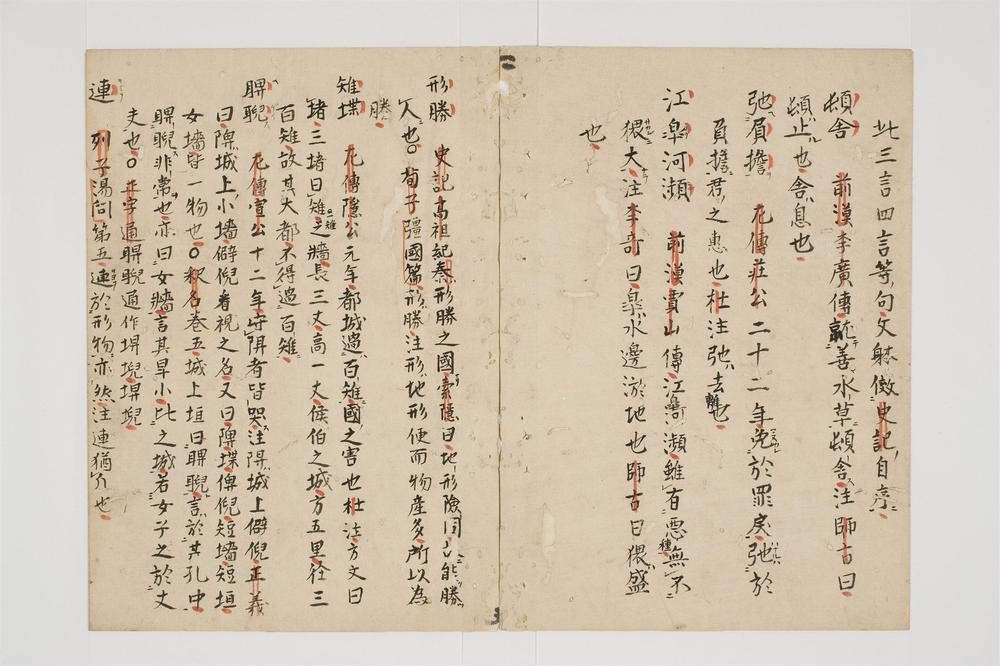 此三言四言等句文躰倣史記自序
頓舎 前漢李廣傳就善水草頓舎注師古曰
頓止也舎息也
弛肩擔 左傳荘公二十二年免於罪戾弛於
負擔君之惠也杜注弛去離也
江皐河瀕 前漢賈山傳江皐河瀕雖有悪種無不
猥大注李奇曰皐水邊淤地也師古曰猥盛
也
形勝 史記高祖紀秦形勝之國索隠曰地形險固故能勝
人也○荀子彊國篇形勝注形地形便而物産多所以為
勝
雉堞 左傳隠公元年都城過百雉國之害也杜注方丈曰
堵三堵曰雉一雉之牆長三丈高一丈侯伯之城方五里径三
百雉故其大都不得過百雉
睥睨 左傳宣公十二年守陴者皆哭注陴城上僻倪正義
曰陴城上小墻僻倪者視之名又曰陴堞俾倪短墻短垣
女墻皆一物也○釈名巻五城上垣曰睥睨言於其孔中
睥睨非常也亦曰女牆言其卑小比之城若女子之於丈
夫也○正字通睥睨通作埤堄埤堄
連 列子湯問第五連於形物亦然注連猶也